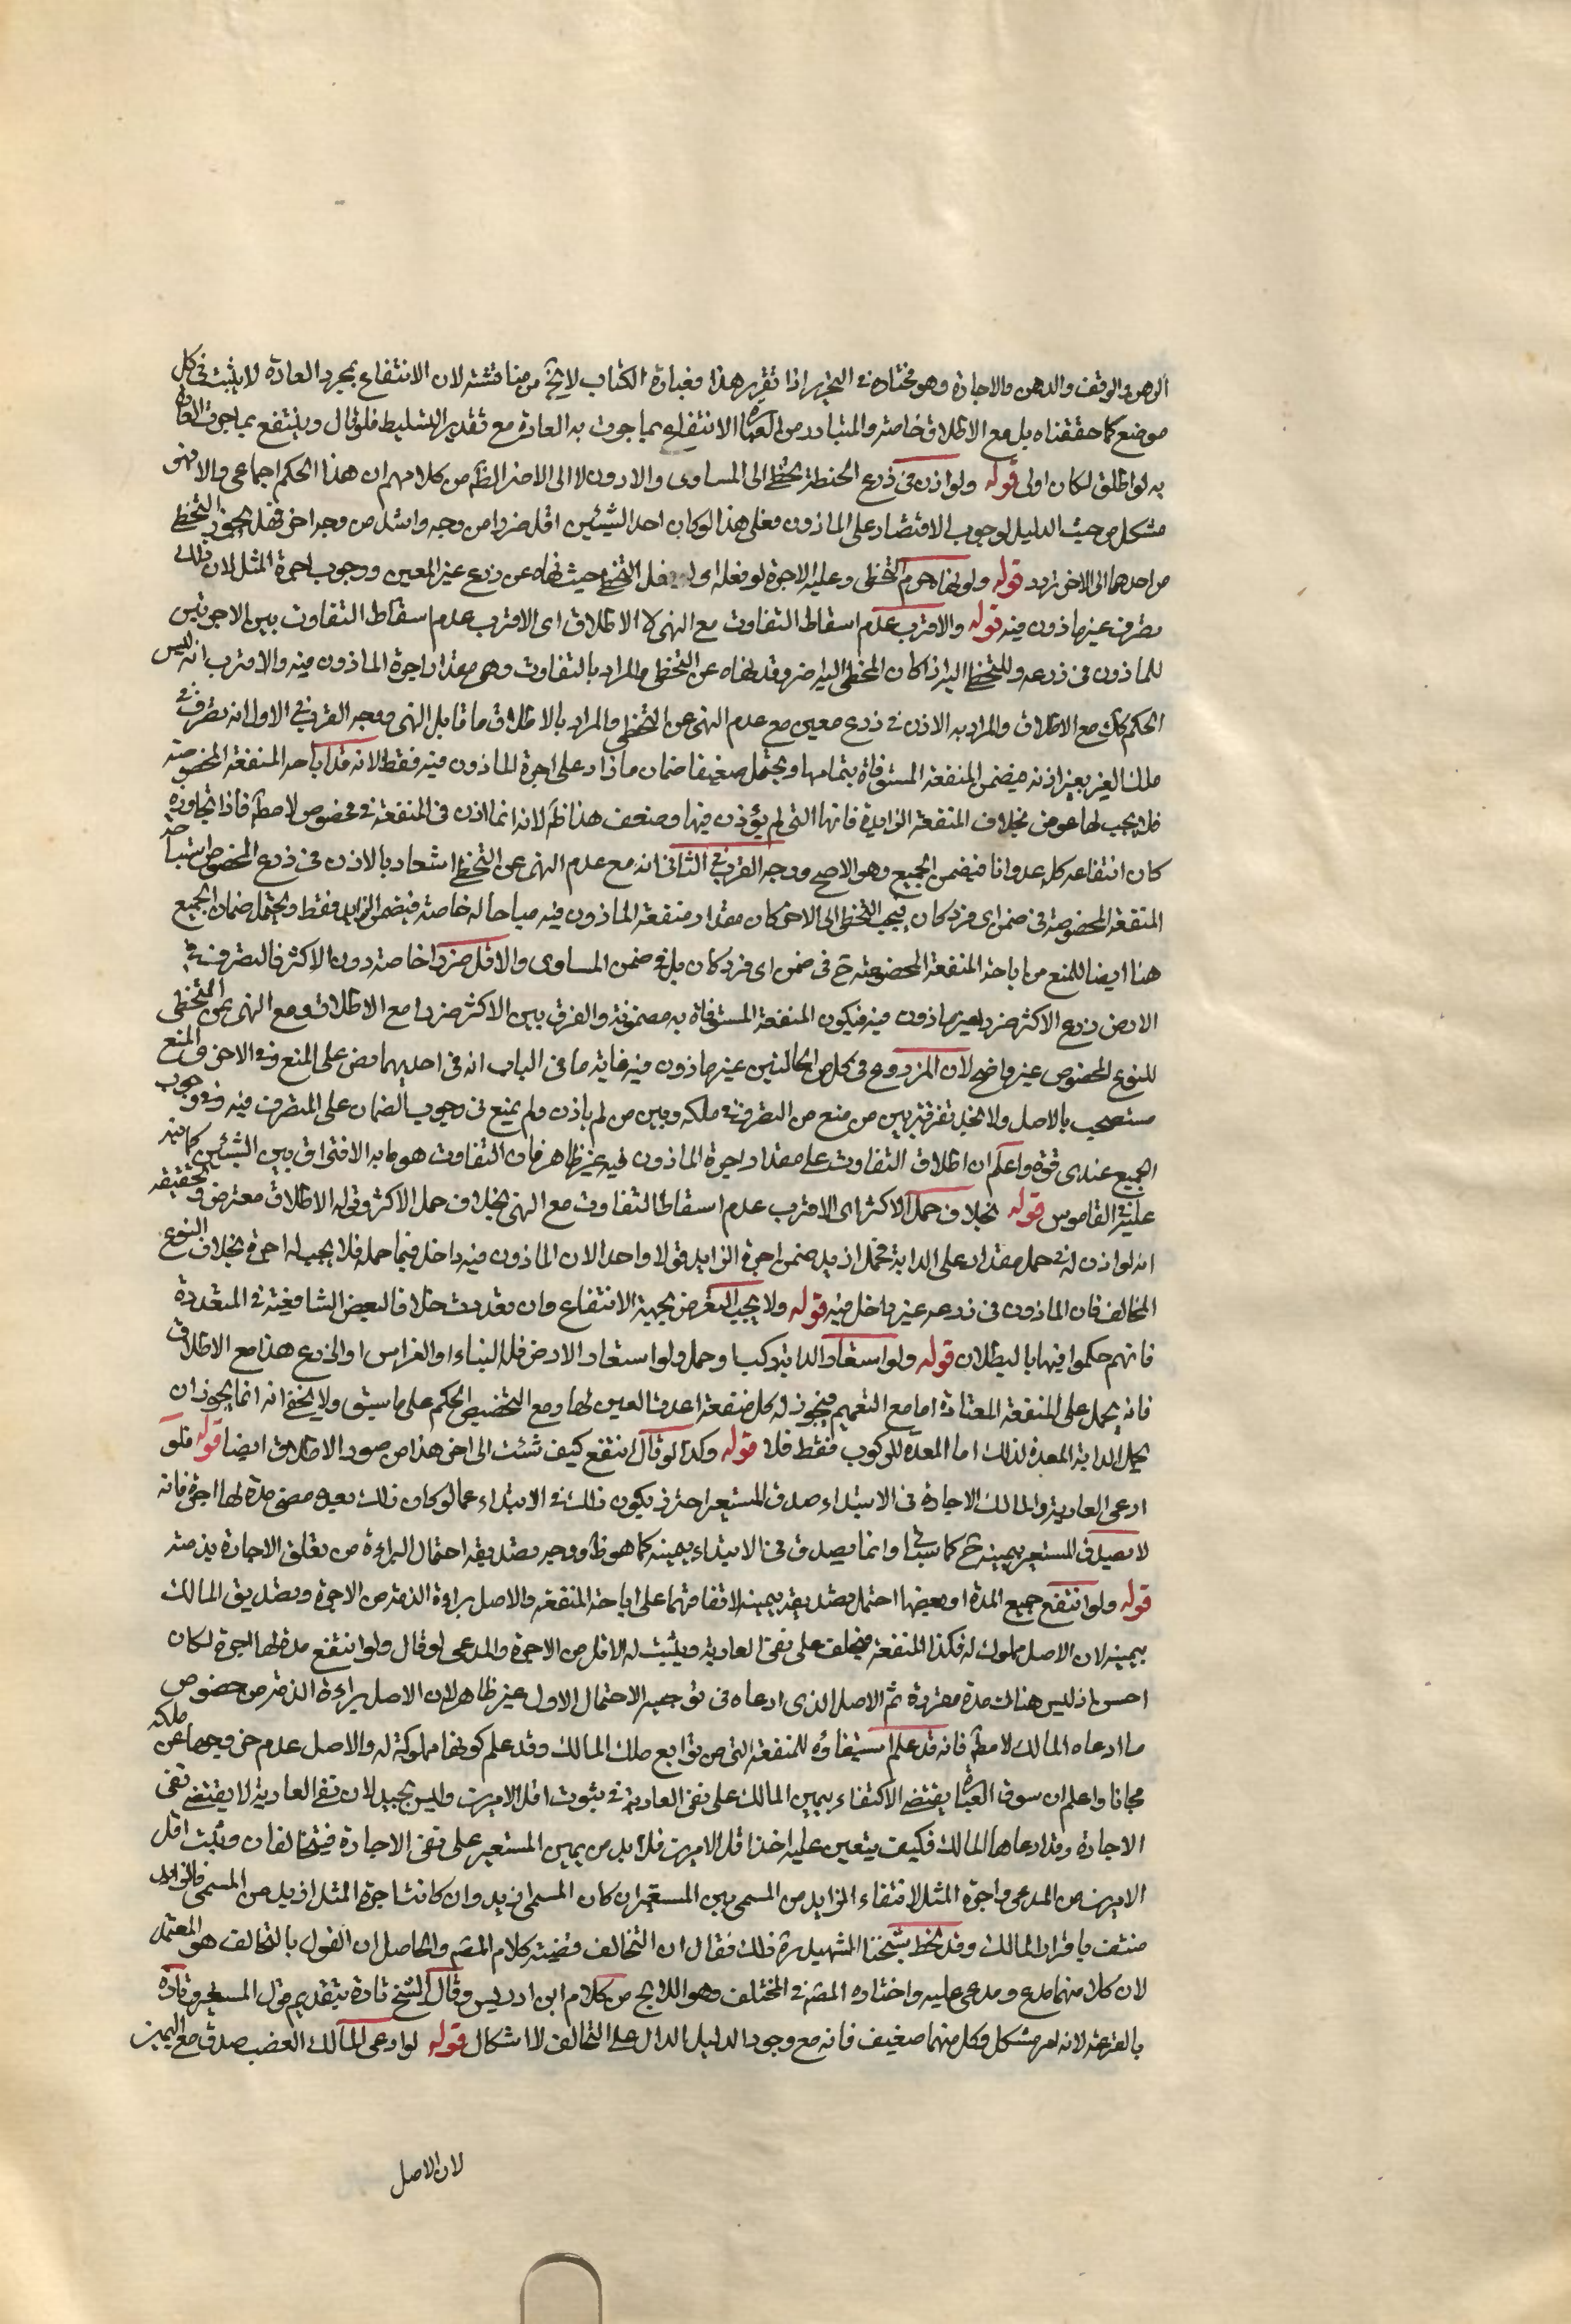 الرهن والوقف والدهن والاجارة وهو مختاره فى التحرير اذا تقرر هذا فعبارة الكتاب لا يخ من مناقشة لان الانتفاع بمجرد العادة لا يثبت فى كل
موضع كما حققناه بل مع الاطلاق خاصة والمتبادر من العبارة الانتفاع بما جرت به العادة مع تقدير التسليط فلو قال وينتفع بما جرت العادة
به لو اطلق لكان اولى قوله ولو اذن فى زرع الحنطة تخطى الى المساوى والادون لا الى الاضر الظ من كلامهم ان هذا الحكم اجماعى والا فهو
مشكل من حيث الدليل لوجوب الاقتصار على الماذون فعلى هذا لو كان احد الشيئين اقل ضررا من وجه واشد من وجه اخر فهل يجوز التخطى
من احدهما الى الاخر تردد قوله ولو نهاه حرم التخطى وعليه الاجرة لو فعله اى لو فعل التخطى حيث نهاه عن زرع غير المعين ووجوب اجرة المثل لان ذلك
تصرف غير ماذون فيه قوله والاقرب عدم اسقاط التفاوت مع النهى لا الاطلاق اى الاقرب عدم اسقاط التفاوت بين الاجرتين
للماذون فى زرعه وللتخطى اليه اذا كان المخطى اليه اضر وقد نهاه عن التخطى والمراد بالتفاوت وهو مقدار اجرة الماذون فيه والاقرب انه ليس
الحكم كك مع الاطلاق والمراد به الاذن فى زرع معين مع عدم النهى عن التخطى والمراد بالاطلاق ما قابل النهى ووجه القرب فى الاول انه تصرف فى
ملك الغير بغير اذنه فيضمن المنفعة المستوفاة بتمامها ويحتمل ضعيفا ضمان ما زاد على اجرة الماذون فيه فقط لانه قد اباحه المنفعة المخصوصة
فلا يجب لها عوض بخلاف المنفعة الزايدة فانها التى لم يؤذن فيها وضعف هذا ظ لانه انما اذن فى المنفعة فى مخصوص لا مط فاذا تجاوزه
كان انتفاعه كله عدوانا فيضمن الجميع وهو الاصح ووجه القرب فى الثانى انه مع عدم النهى عن التخطى اشعار بالاذن فى زرع المخصوص استباحة
المنفعة المخصوصة فى ضمن اى فرد كان فيجب التخطى الى الاخر كان مقدار منفعة الماذون فيه مباحا له خاصة فيضمن الزايد فقط ويحتمل ضمان الجميع
هنا ايضا للمنع من اباحة المنفعة المخصوصة ح فى ضمن اى فرد كان بل فى ضمن المساوى والاقل ضررا خاصة دون الاكثر فالتصرف فى
الارض بزرع الاكثر ضررا غير ماذون فيه فيكون المنفعة المستوفاة به مضمونة والفرق بين الاكثر ضررا مع الاطلاق ومع النهى عن التخطى
للنوع المخصوص غير واضح لان المزروع فى كل من الحالتين غير ماذون فيه غاية ما فى الباب انه فى احديهما نص على المنع وفى الاخرى المنع
مستصحب بالاصل ولا نجد تفرقة بين من منع من التصرف فى ملكه وبين من لم ياذن ولم يمنع فى وجوب الضمان على المتصرف فيه وفى وجوب
الجميع عندى قوة واعلم ان اطلاق التفاوت على مقدار اجرة الماذون فيه غير ظاهر فان التفاوت هو ما به الافتراق بين الشيئين كما نبه
عليه فى القاموس قوله بخلاف حمل الاكثر اى الاقرب عدم اسقاط التفاوت مع النهى بخلاف حمل الاكثر وقوله الاطلاق معترض وتحقيقه
انه لو اذن له فى حمل مقدار على الدابة فحمل ازيد ضمن اجرة الزايد قولا واحدا لان الماذون فيه داخل فيما حمله فلا يجب له اجرة بخلاف النوع
المخالف فان الماذون فى زرعه غير داخل فيه قوله ولا يجب التعرض لجهة الانتفاع وان تعددت خلافا لبعض الشافعية فى المتعددة
فانهم حكموا فيها بالبطلان قوله ولو استعار الدابة ركب او حمل ولو استعار الارض فله البناء او الغراس او الزرع هذا مع الاطلاق
فانه يحمل على المنفعة المعتادة اما مع التعميم فيجوز له كل منفعة اعدت العين لها ومع التخصيص الحكم على ما سبق ولا يخفى انه انما يجوز ان
يحمل الدابة المعدة لذلك اما المعدة للركوب فقط فلا قوله وكذا لو قال انتفع كيف شئت الى اخر هذا من صور الاطلاق ايضا قوله فلو
ادعى العارية والمالك الاجارة فى الابتداء صدق المستعير احترز بكون ذلك فى الابتداء عما لو كان ذلك بعد مضى مدة لها اجرة فانه
لا يصدق المستعير بيمينه ح كما سياتى وانما يصدق فى الابتداء بيمينه كما هو ظ ووجه تصديقه احتمال البراءة من تعلق الاجارة بذمته
قوله ولو انتفع جميع المدة او بعضها احتمل تصديقه بيمينه لاتفاقهما على اباحة المنفعة والاصل براءة الذمة من الاجرة وتصديق المالك
بيمينه لان الاصل مملوك له فكذا المنفعة فيحلف على نفى العارية ويثبت له الاقل من الاجرة والمدعى لو قال ولو انتفع مدة لها اجرة لكان
احسن اذ ليس هناك مدة مقررة ثم الاصل الذى ادعاه فى توجيه الاحتمال الاول غير ظاهر لان الاصل براءة الذمة من خصوص
ما ادعاه المالك لا مط فانه قد علم استيفاؤه للمنفعة التى من توابع ملك المالك وقد علم كونها مملوكة له والاصل عدم خروجها عن ملكه
مجانا واعلم ان سوق العبارة يقتضى الاكتفاء بيمين المالك على نفى العارية فى ثبوت اقل الامرين وليس بجيد لان نفى العارية لا يقتضى نفى
الاجارة وقد ادعاها المالك فكيف يتعين عليه اخذ اقل الامرين فلا بد من يمين المستعير على نفى الاجارة فيتحالفان ويثبت اقل
الامرين من المدعى واجرة المثل لانتفاء الزايد من المسمى بيمين المستعير ان كان المسمى ازيد وان كانت اجرة المثل ازيد من المسمى فالزايد
منتف باقرار المالك وقد لحظ شيخنا الشهيد ره ذلك فقال ان التحالف قضية كلام المص والحاصل ان القول بالتحالف هو المعتمد
لان كلا منهما مدع ومدعى عليه واختاره المص فى المختلف وهو اللايح من كلام ابن ادريس وقال الشيخ تارة بتقديم قول المستعير وتارة
بالقرعة لانه امر مشكل وكل منهما ضعيف فانه مع وجود الدليل الدال على التحالف لا اشكال قوله لو ادعى المالك الغصب صدق مع اليمين
لان الاصل